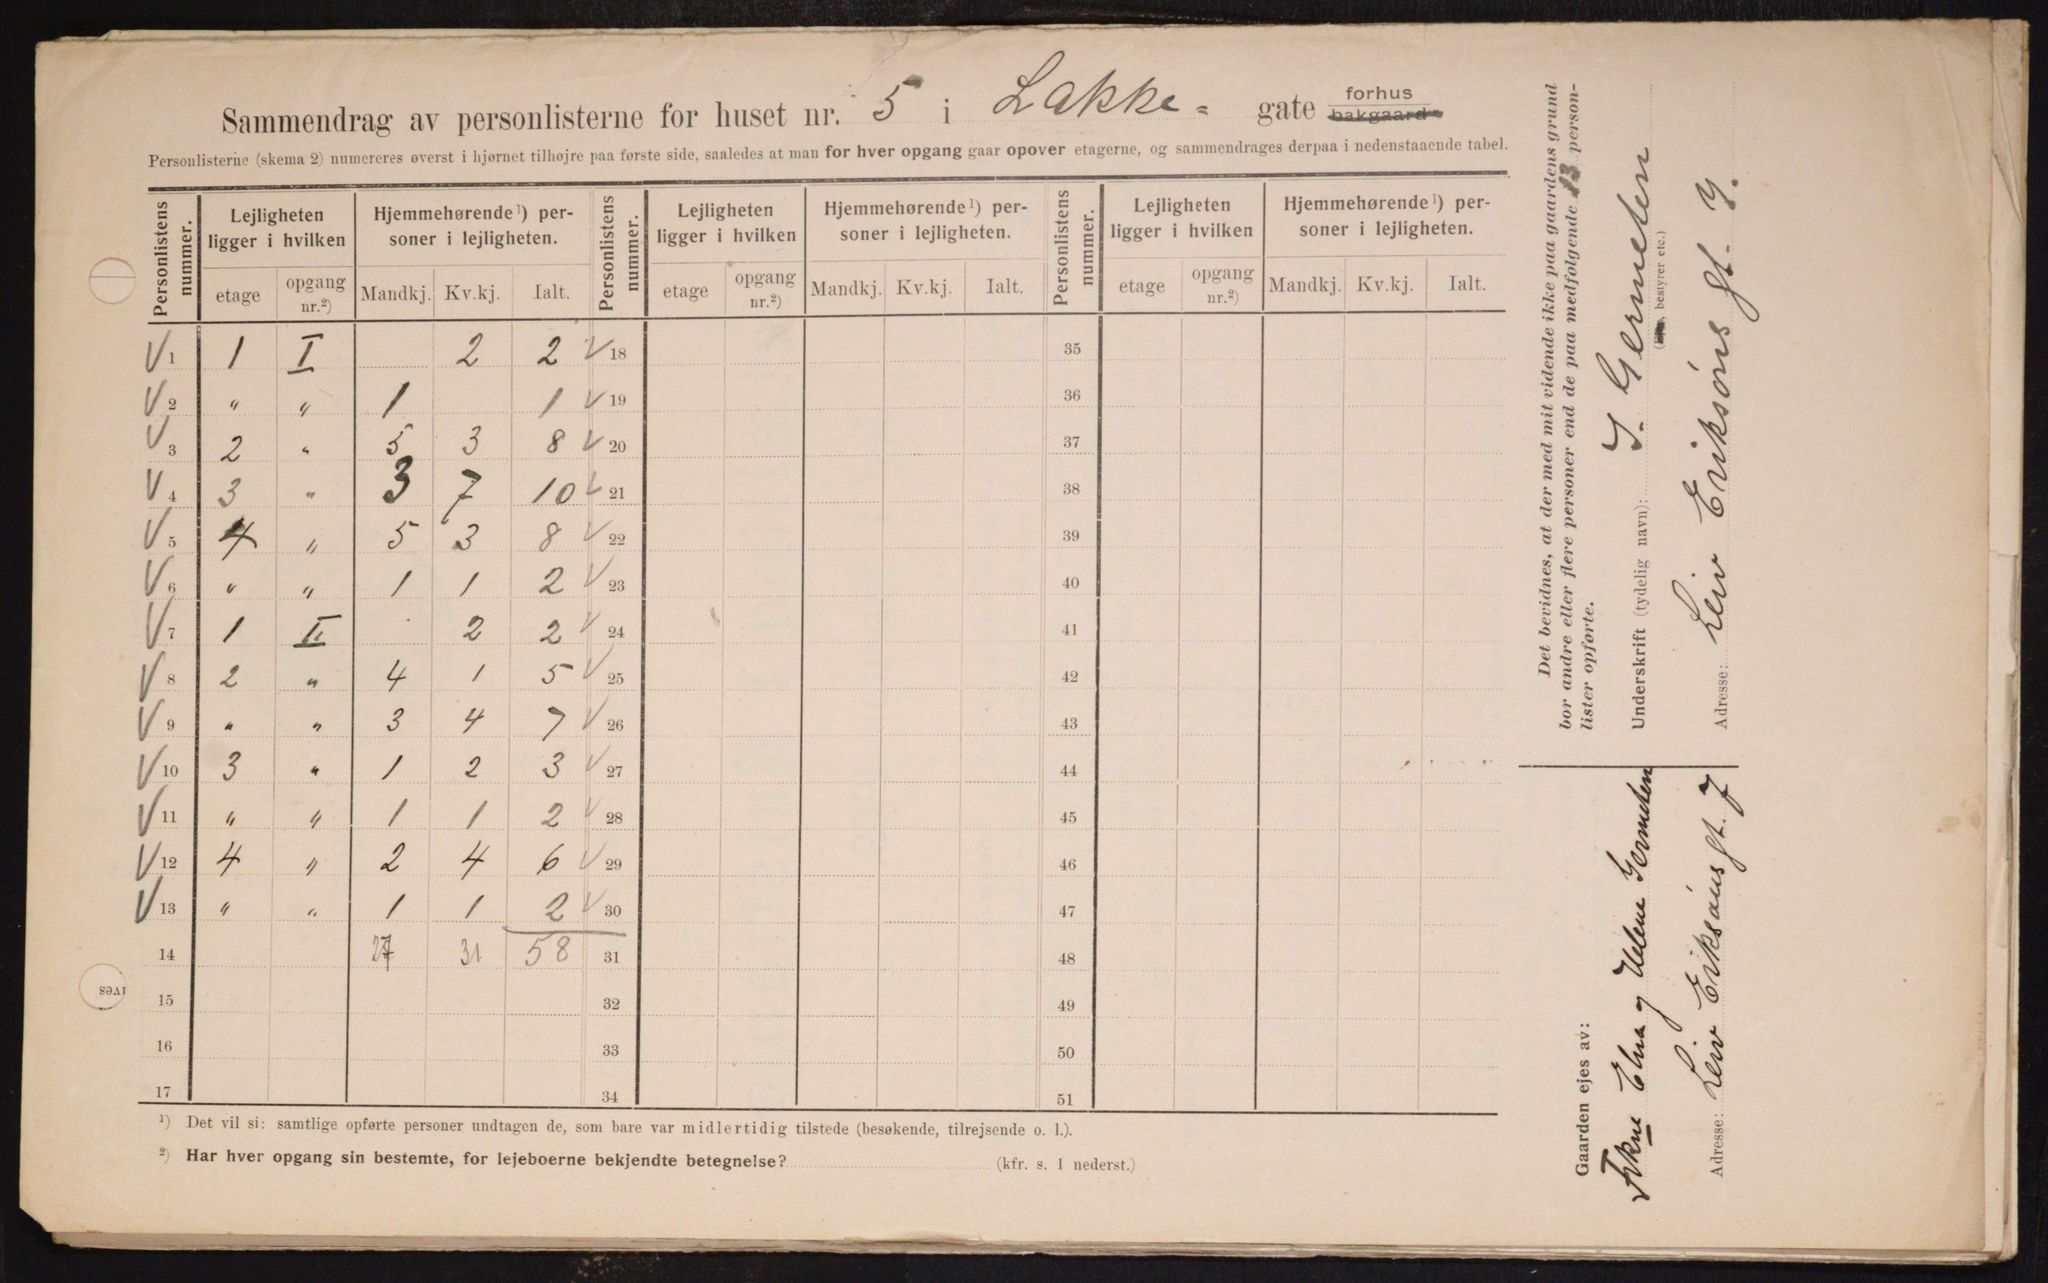 Sammendrag av personlisterne for huset nr. 5 i Lakke= gate forhus bakgaard
Personlisterne (skema 2) numereres øverst i hjørnet tilhøjre paa første side, saaledes at man for hver opgang gaar opover etagerne, og sammendrages derpaa i nedenstaaende tabel.
Personlistens nummer. Lejligheten ligger i hvilken Hjemmehørende ¹) personer i lejligheten. Personlistens nummer. Lejligheten ligger i hvilken Hjemmehørende ¹) personer i lejligheten. Personlistens nummer. Lejligheten ligger i hvilken Hjemmehørende ¹) personer i lejligheten.
etage opgang nr.²) Mandkj. Kv.kj. Ialt. etage opgang nr.²) Mandkj. Kv.kj. Ialt. etage opgang nr.²) Mandkj. Kv.kj. Ialt.
V 1 1 I 2 2 V 18 35
V 2 " " 1 1 V 19 36
V 3 2 " 5 3 8 V 20 37
V 4 3 " 3 7 10 V 21 38
V 5 4 " 5 3 8 V 22 39
V 6 " " 1 1 2 V 23 40
V 7 1 II 2 2 V 24 41
V 8 2 " 4 1 5 V 25 42
V 9 " " 3 4 7 V 26 43
V 10 3 " 1 2 3 V 27 44
V 11 " " 1 1 2 V 28 45
V 12 4 " 2 4 6 V 29 46
V 13 " " 1 1 2 V 30 47
14 27 31 58 31 48
15 32 49
16 33 50
17 34 51
¹) Det vil si: samtlige opførte personer undtagen de, som bare var midlertidig tilstede (besøkende, tilrejsende o. l.).
²) Har hver opgang sin bestemte, for lejeboerne bekjendte betegnelse? (kfr. s. 1 nederst.)
Det bevidnes, at der med mit vidende ikke paa gaardens grund
bor andre eller flere personer end de paa medfølgende 13 person-
lister opførte.
Underskrift (tydelig navn): I. Germeten
bestyrer etc.)
Adresse: Leiv Eriksøns gt. 7.
Gaarden ejes av:
Frkne Elna og Helene Germeten
Adresse: Leiv Eriksøns gt. 7
ives